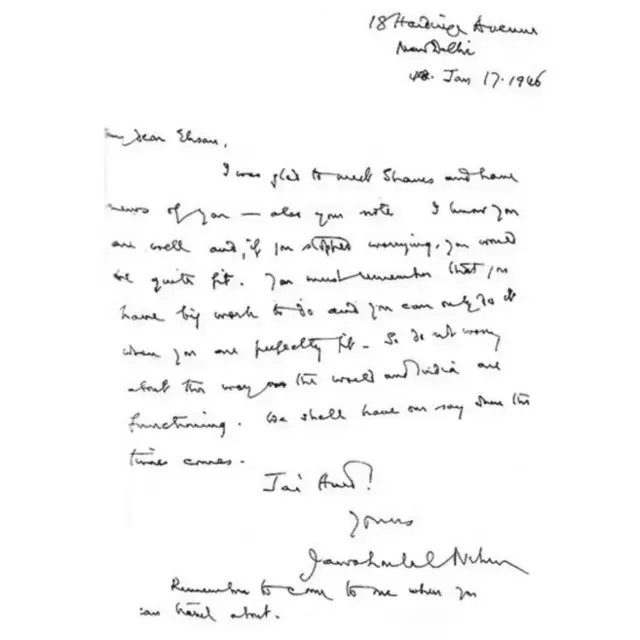 18 Hardinge Avenue
New Delhi
Jan 17. 1946
My dear Ehsan,
I was glad to meet and have
news of you — also your note I know you
are well and, if you stopped worrying, you would
be quite fit. You must remember that you
have big work to do and you can only do it
when you are perfectly fit. So do not worry
about the way the world and India are
functioning. We shall have our say when the
time comes.
Jai Hind!
Yours
Jawaharlal Nehru
Remember to come to me when you
can travel about.